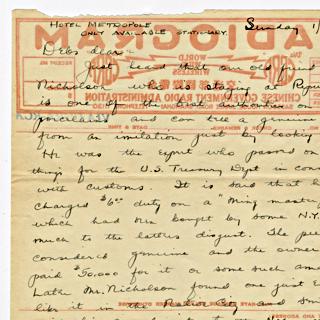 HOTEL METROPOLE
ONLY AVAILABLE STATIONERY.
Sunday 1/
Debs dear
Just heard that our old friend
Nicholson who is staying at Pepin
is one of the best authorities on
porcelain and can tell a genuine
from an imitation just by looking
He was the expert who passed on
things for the U.S. Treasury Dept in con
with customs. It is said that he
charged $600 duty on a "Ming master
which had been bought by some N.Y.
much to the latters disgust. The piec
considered genuine and the owner
paid $50,000 for it or some such am
Later Mr. Nicholson found one just e
like it in the City and
CHINESE GOVERNMENT RADIO ADMINISTRATION
WORLD
WIRELESS